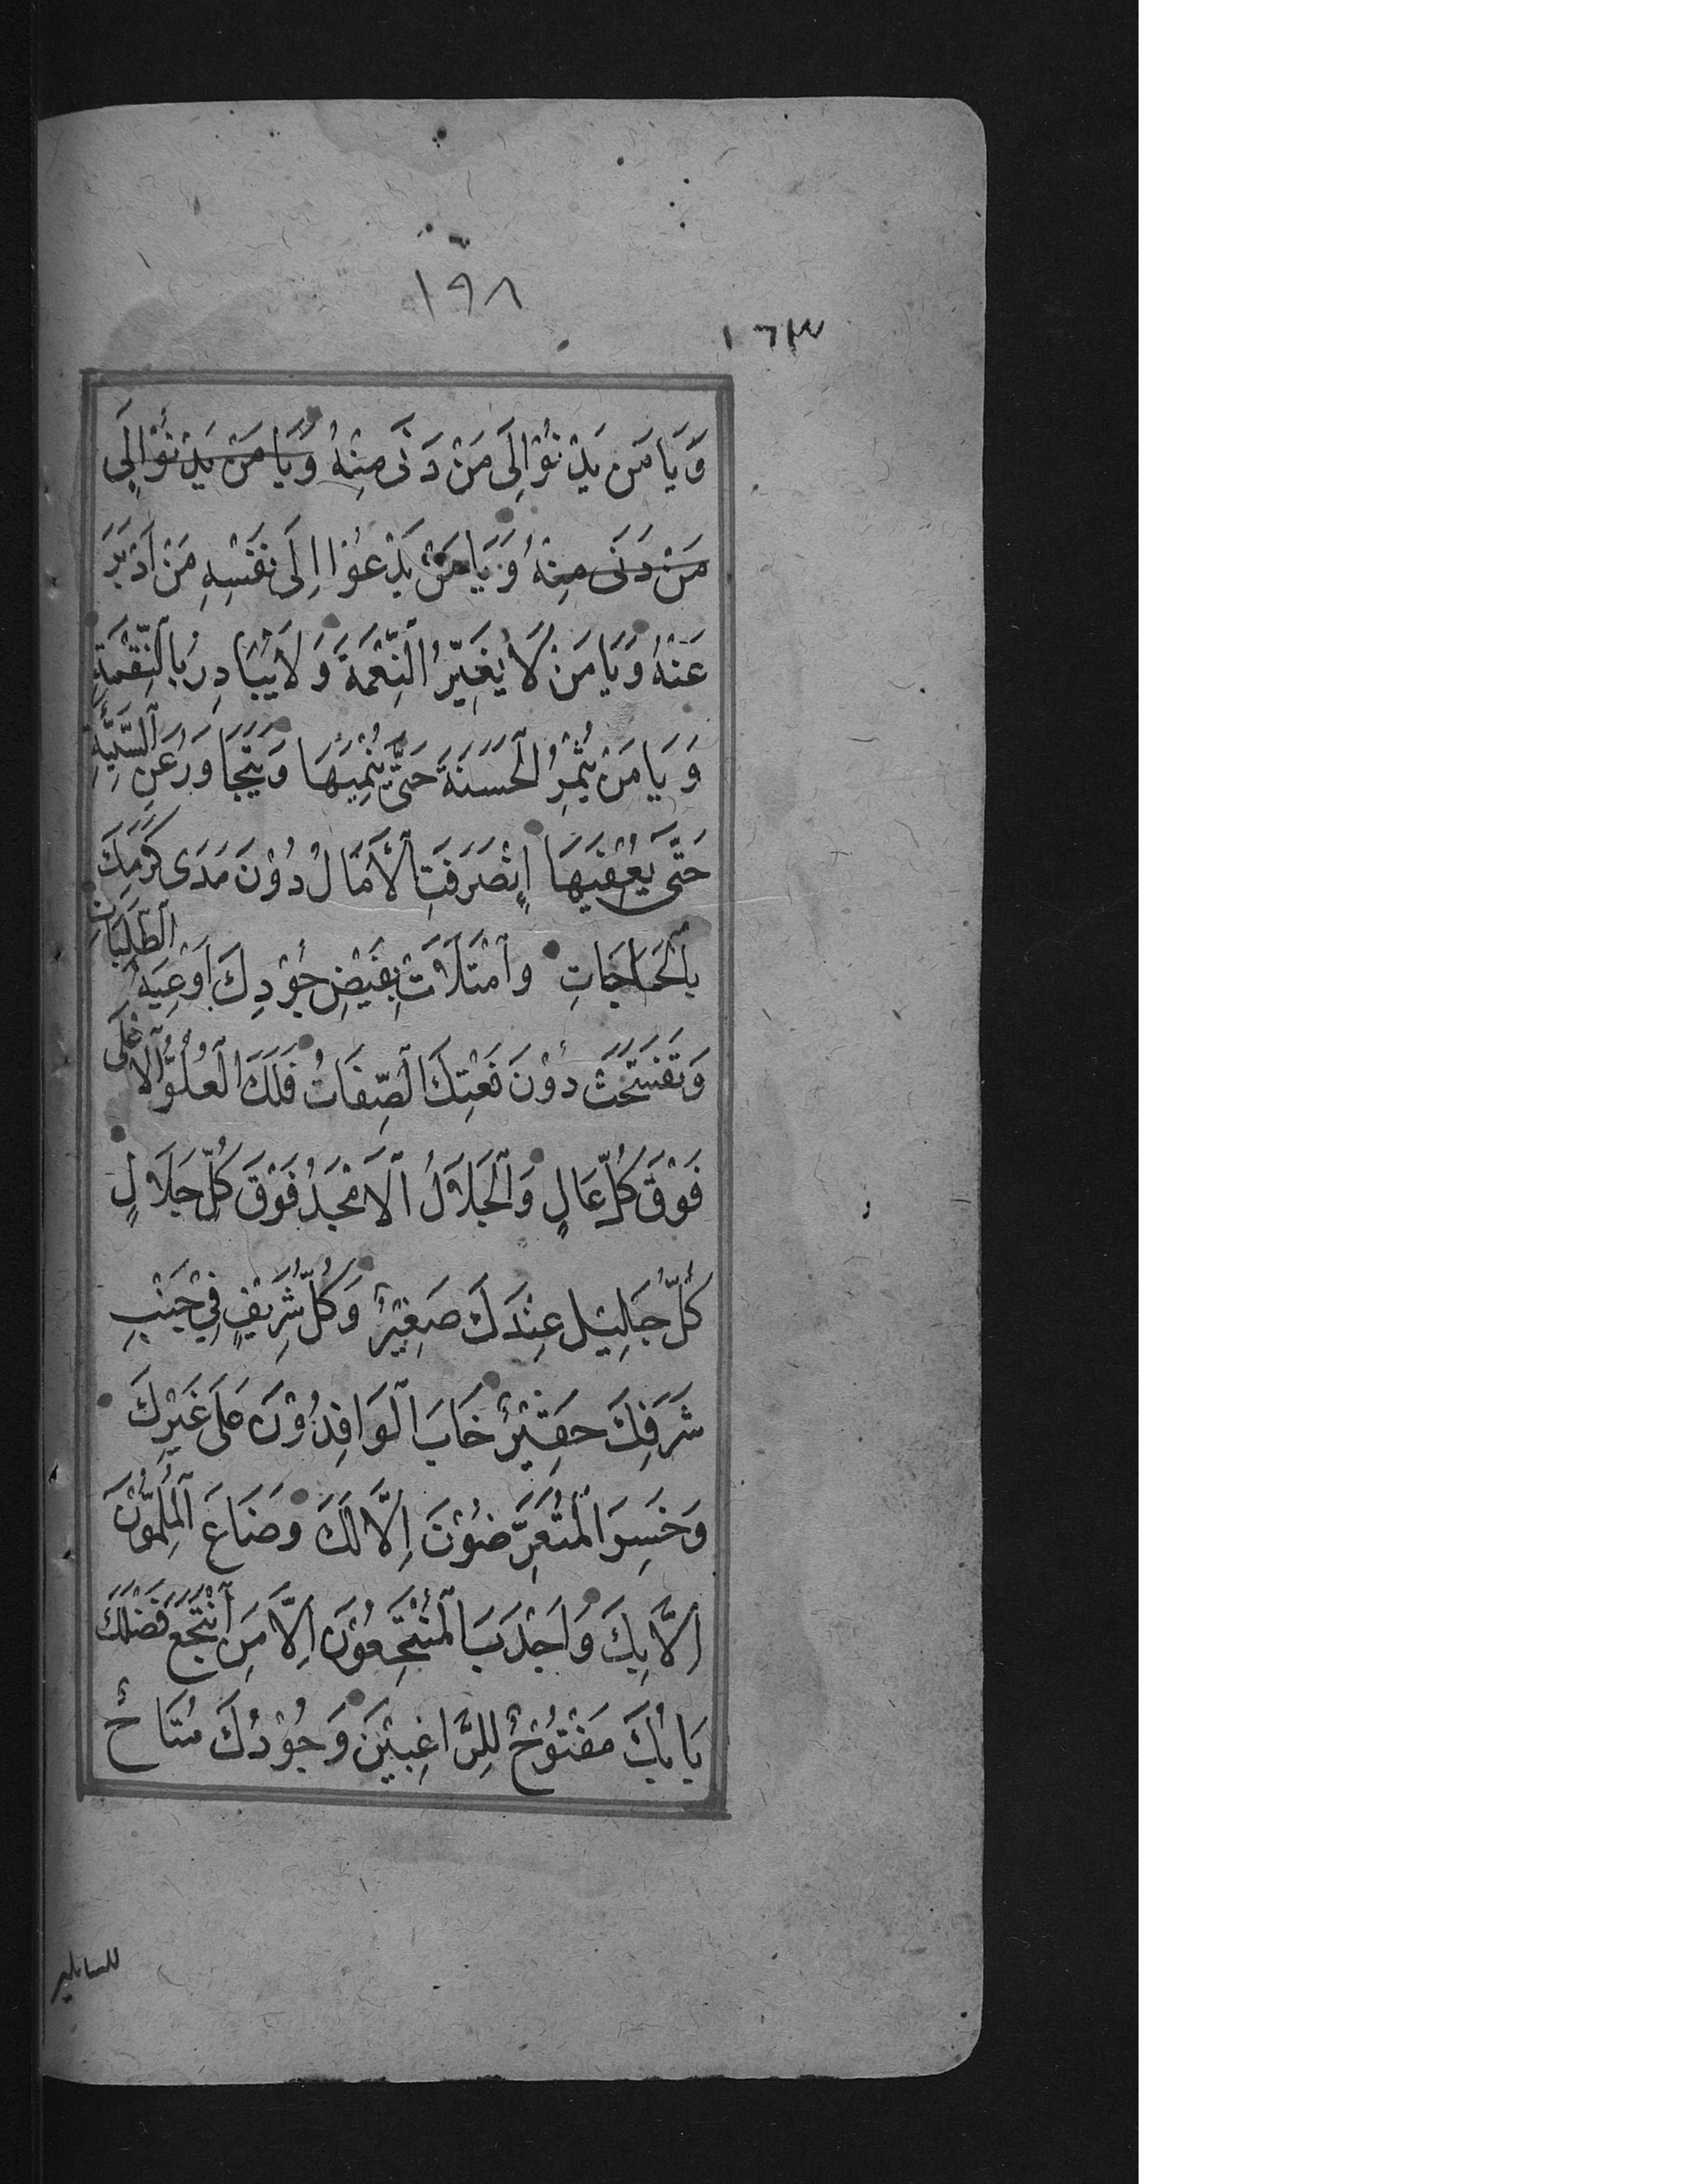 ١٩٨
١٦٣
وَيَا مَن يَدْنُوْا اِلَى مَنْ دَنَى مِنْهُ وَيَا مَنْ يَدْنُوْا اِلَى
مَنْ دَنَى مِنْهُ وَيَا مَنْ يَدْعُوْا اِلَى نَفْسِهِ مَنْ اَدْبَرَ
عَنْهُ وَيَا مَنْ لَا يُغَيِّرُ النِّعْمَةَ وَلَا يُبَادِرُ بِالنِّقْمَةِ
وَيَا مَنْ يُثْمِرُ الْحَسَنَةَ حَتَّى يُنْمِيَهَا وَيَتَجَاوَزُ عَنِ السَّيِّئَةِ
حَتَّى يُعْفِيَهَا اِنْصَرَفَتِ الْأَمَالُ دُوْنَ مَدَى كَرَمِكَ
بِالْحَاجَاتِ وَامْتَلَاَتْ بِفَيْضِ جُوْدِكَ اَوْعِيَةُ الطَّلِبَاتِ
وَتَفَسَّخَتْ دُوْنَ نَعْتِكَ الصِّفَاتُ فَلَكَ الْعُلُوُّ الْاَعْلَى
فَوْقَ كُلِّ عَالٍ وَالْجَلَالُ الْاَمْجَدُ فَوْقَ كُلِّ جَلَالٍ
كُلُّ جَلِيْلٍ عِنْدَكَ صَغِيْرٌ وَكُلُّ شَرِيْفٍ فِيْ جَنْبِ
شَرَفِكَ حَقِيْرٌ خَابَ الْوَافِدُوْنَ عَلَى غَيْرِكَ
وَخَسِرَ الْمُتَعَرِّضُوْنَ اِلَّا لَكَ وَضَاعَ الْمُلِمُّوْنَ
اِلَّا بِكَ وَاَجْدَبَ الْمُنْتَجِعُوْنَ اِلَّا مَنِ انْتَجَعَ فَضْلَكَ
بَابُكَ مَفْتُوْحٌ لِلرَّاغِبِيْنَ وَجُوْدُكَ مُتَاحٌ
للسايلين